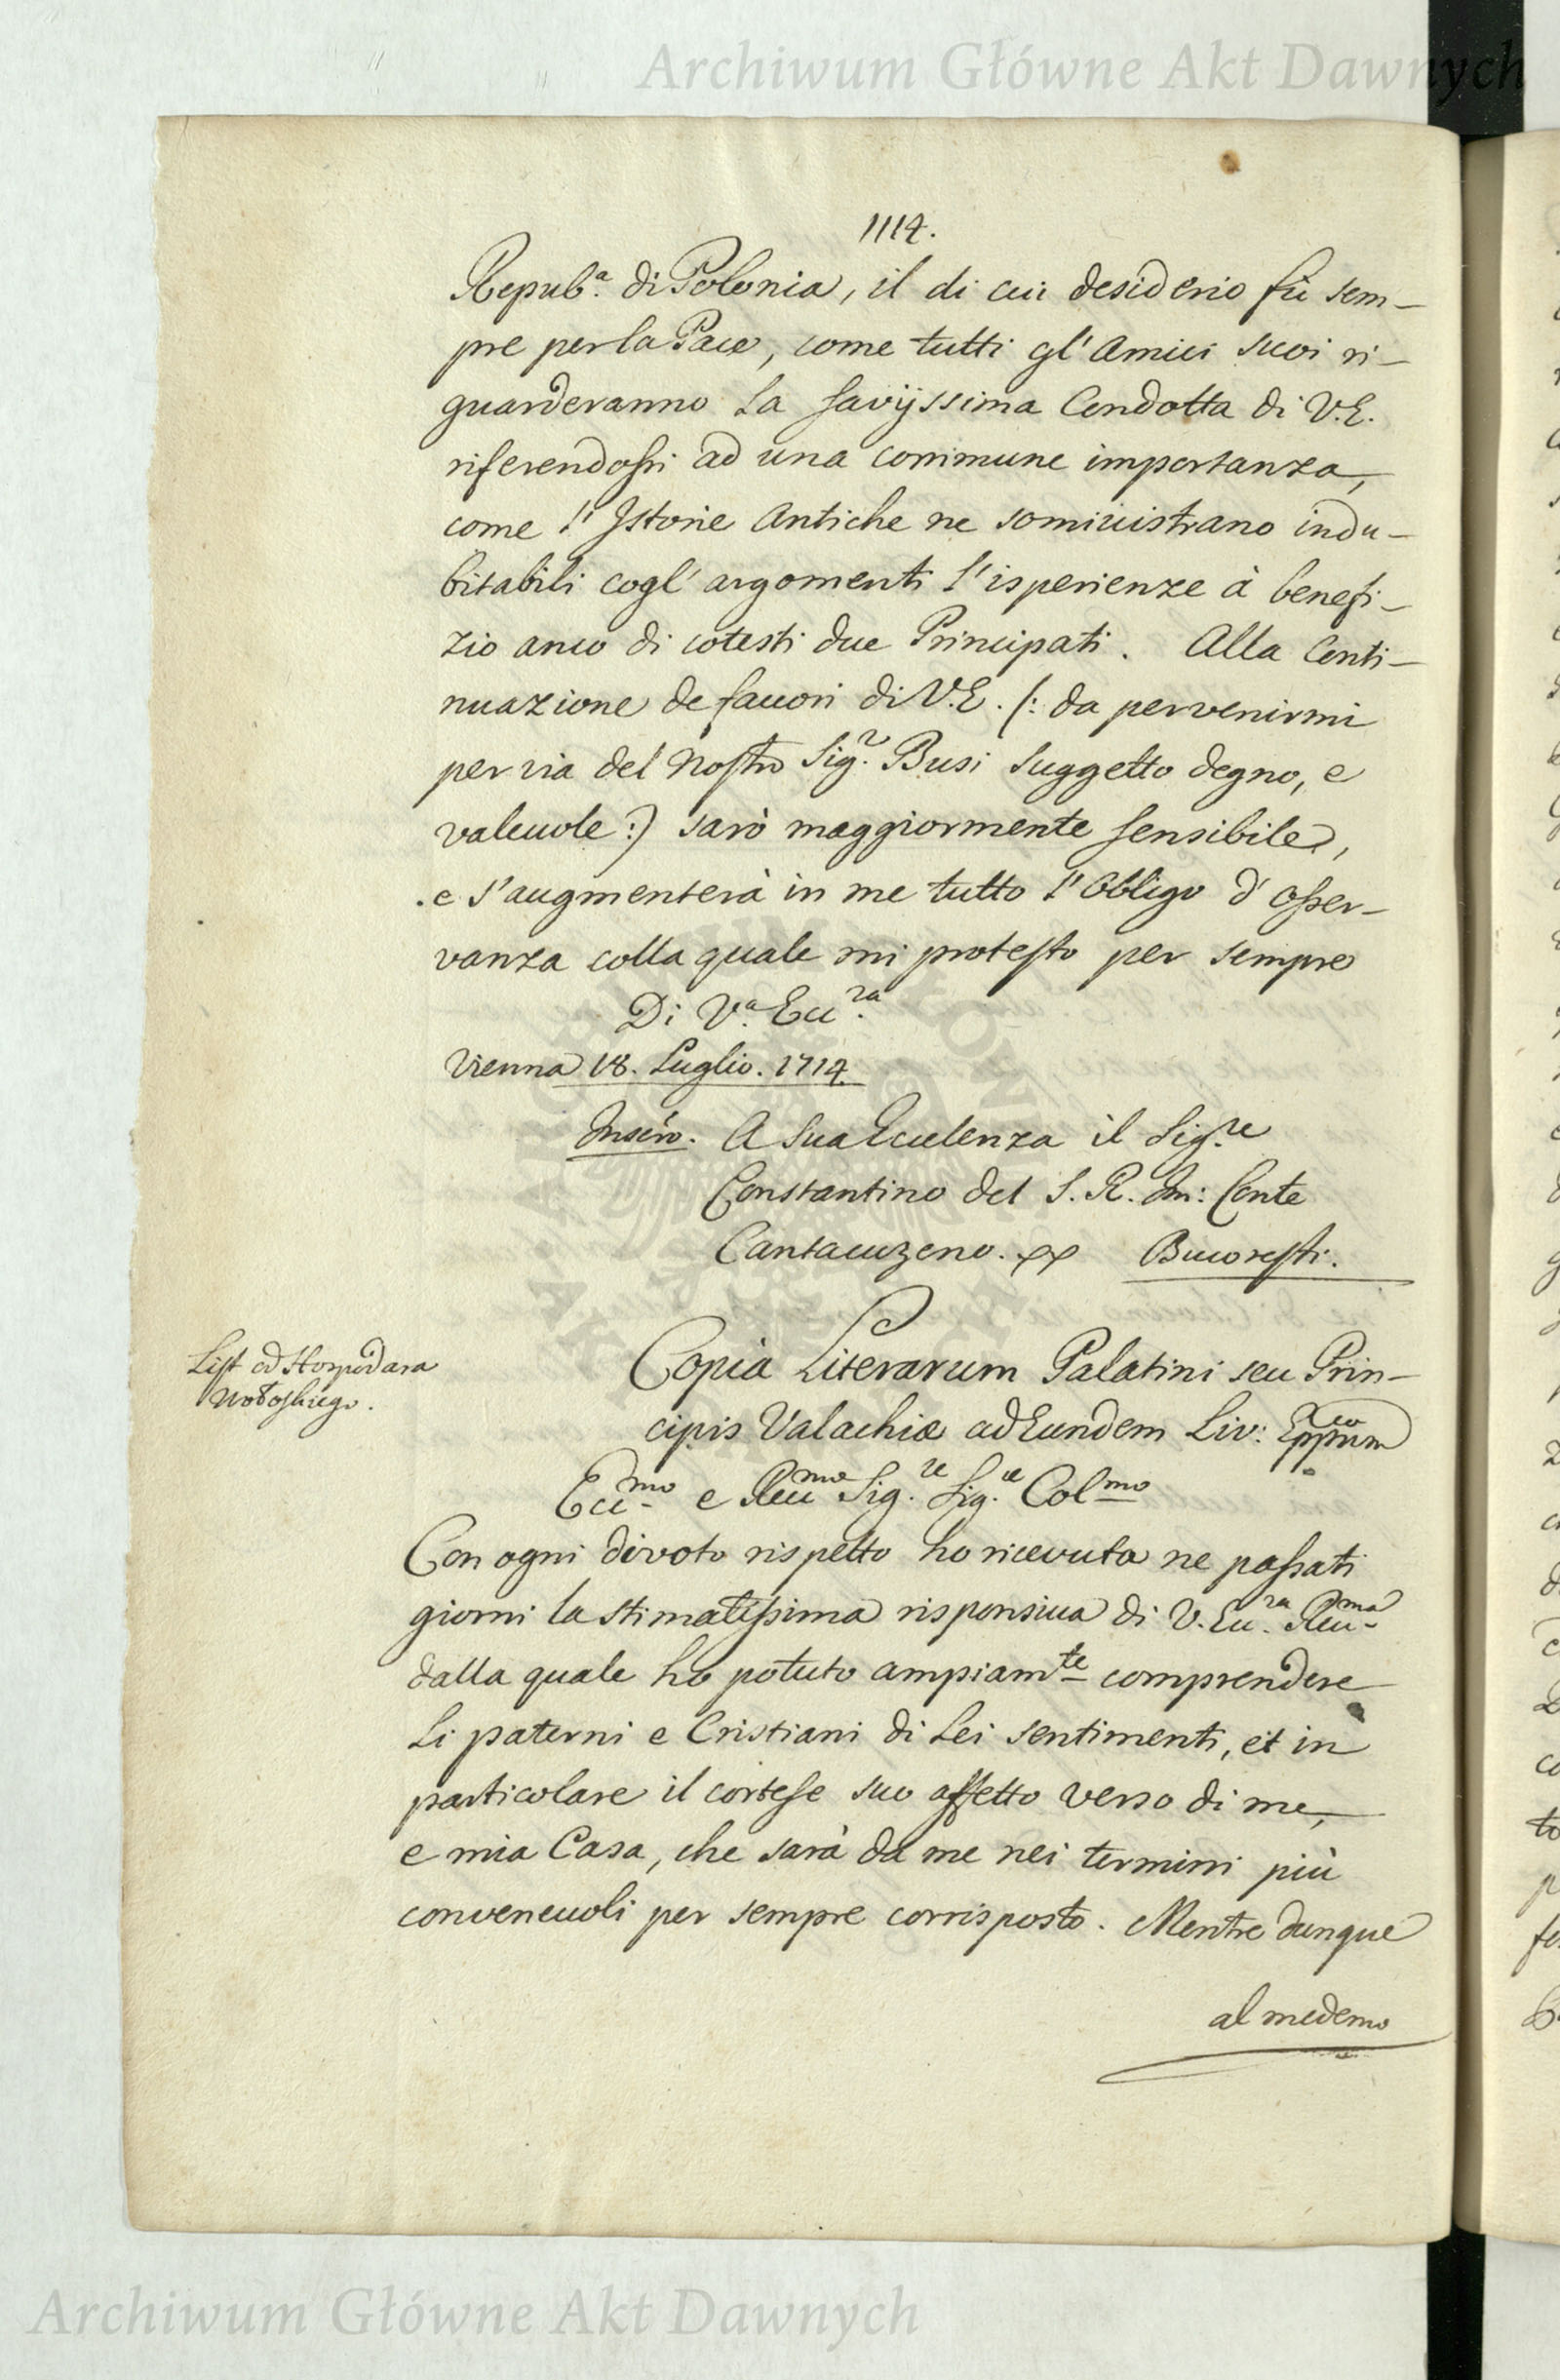 Archiwum Główne Akt Dawnych
1114.
Repub.ª di Polonia, il di cui desiderio fù sem-
pre per la Pace, come tutti gl' Amici suoi ri-
guarderanno la savijssima Condotta di V.E.
riferendosi ad una commune importanza,
come l' Istorie Antiche ne soministrano indu-
bitabili cogl' argomenti l'isperienze à benefi-
zio anco di cotesti due Principati. Alla Conti-
nuazione de favori di V.E. (: da pervenirmi
per via del nostro Sig.r Busi suggetto degno, e
valeuole :) sarò maggiormente sensibile,
e s'augmenterà in me tutto l' obbligo d' osser-
vanza colla quale mi protesto per sempre
Di V.ª Ecc.za
Vienna 18. Luglio. 1714
Inscro. A Sua Eccelenza il Sig.re
Constantino del S. R. Im: Conte
Cantacuzeno. Bucoresti.
List od Hospodara
Wołoskiego.
Copia Literarum Palatini seu Prin-
cipis Valachiæ ad Eundem Liv: Eppum
Ecc.mo e Reu.mo Sig.re Sig.re Col.mo
Con ogni divoto rispetto ho ricevuta ne passati
giorni la stimatissima risponsiua di V. Ecc.za Reu.ma
dalla quale ho potuto ampiam.te comprendere
li paterni e Cristiani di Lei sentimenti, et in
particolare il cortese suo affetto verso di me,
e mia Casa, che sarà da me nei termini più
conveneuoli per sempre corrisposto. Mentre dunque
al medemo
Archiwum Główne Akt Dawnych